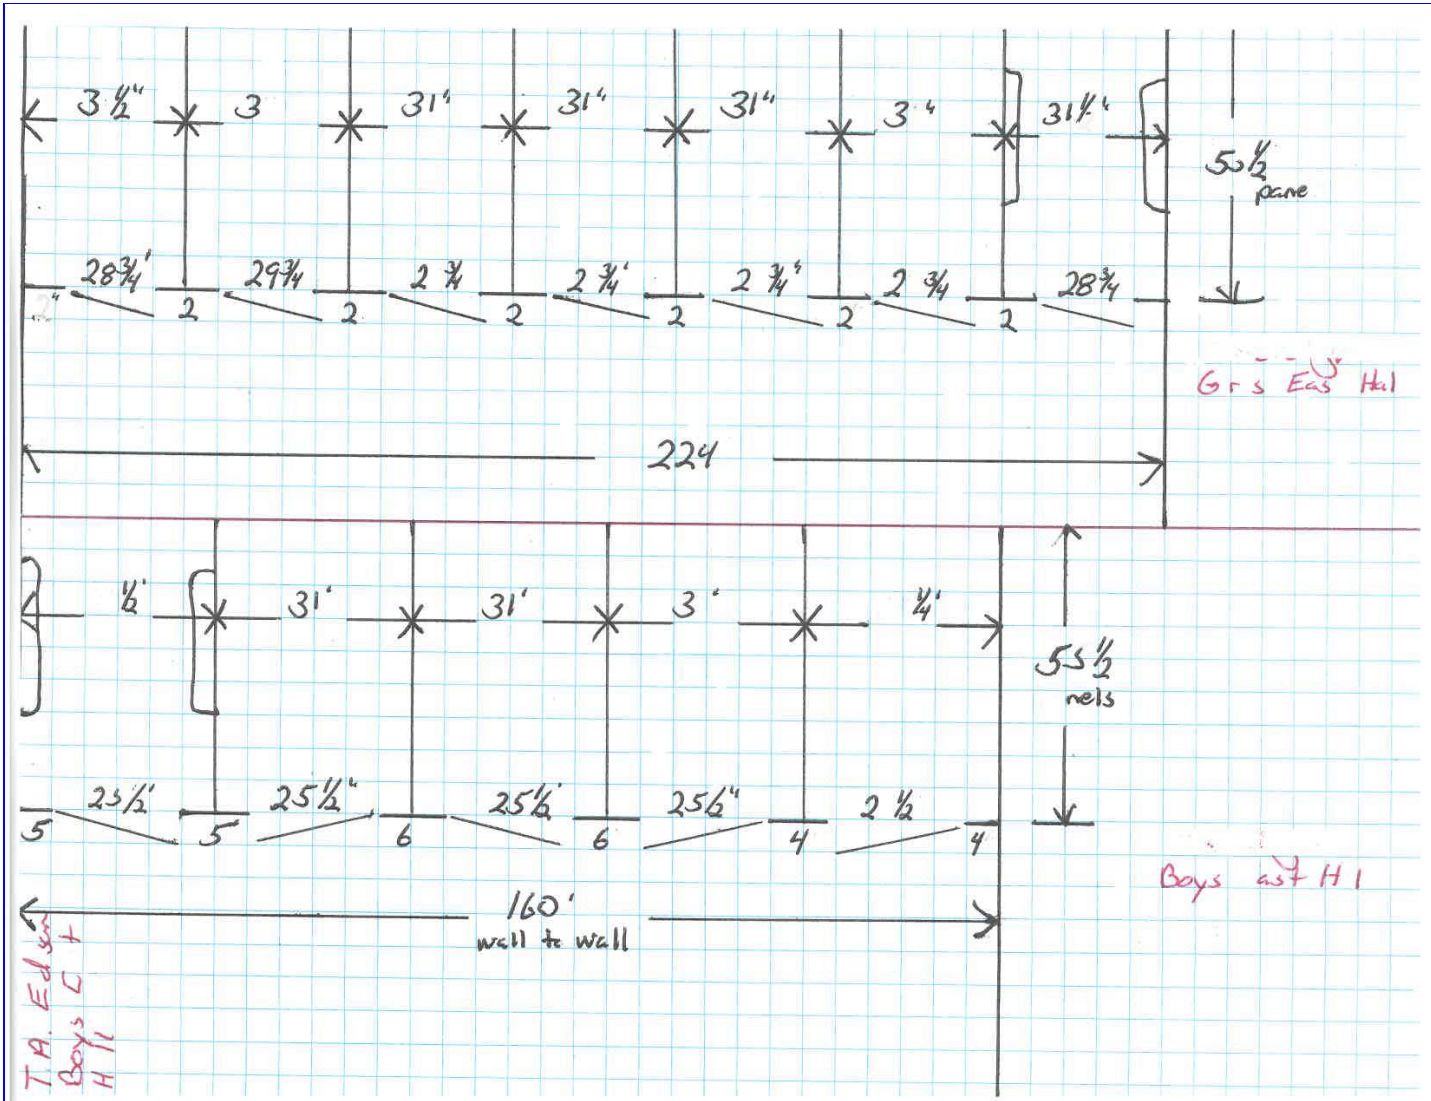 3 ½" 3 31" 31" 31" 3 " 31½"
50½
pane
28¾' 29¾ 2 ¾ 2 ¾' 2 ¾" 2 ¾ 28¾
2" 2 2 2 2 2 2
G r s Eas Hal
224
½' 31' 31' 3 ' ¼'
55½
nels
25½' 25½" 25½' 25½" 2 ½
5 5 6 6 4 4
Boys ast H l
160'
wall to wall
T.A. Ed son
Boys E t
H ll